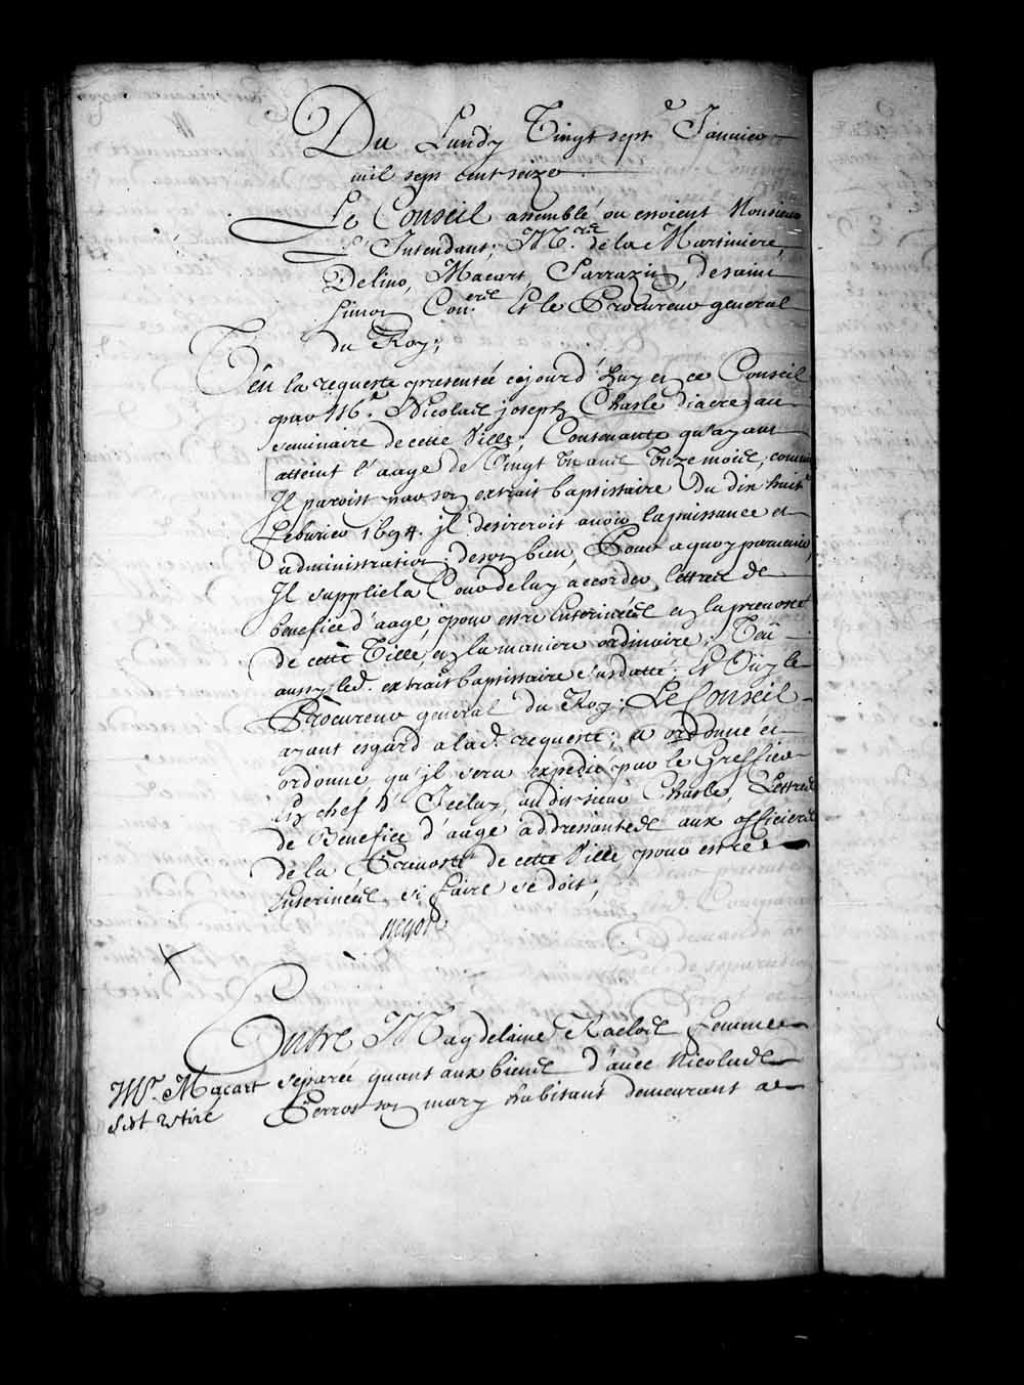 Du Lundy Vingt sept.e Janvier
mil sept cent seize
Le Conseil assemblé ou estoient Monsieur
L'Intendant; M.rs de la Martiniere,
Delino, Macart, Sarrazin, de saint
Simon Con.ers Et le Procureur general
du Roy;
Veu la requeste presentée cejourd'huy en ce Conseil
par M.e Nicolas joseph Chasle diacre au
seminaire de cette Ville; Contenante qu'ayant
atteint l'aage de Vingt Un ans Unze mois, comme
Il paroist par son extrait baptistaire Du dix huit.e
Febvrier 1694. il desireroit avoir la puissance et
administration de son bien, Pour a quoy parvenir,
Il supplie la Cour de luy accorder lettres de
benefice d'aage pour estre Enterinées en la prevosté
de cette Ville, en la maniere ordinaire; Veu
aussy led. extrait baptistaire susdatté; Et Oüy le
Procureur general du Roy; Le Conseil
ayant esgard a lad. requeste; a ordonné et
ordonne qu'il sera expedié par le Greffier
En chef d'Iceluy, audit sieur Chasle, Lettres
de Benefice d'aage addressantes aux officiers
de la Prevosté de cette Ville pour estre
Enterinées si faire se doit;
Begon
Entre Magdelaine Racloss femme
M.r Macart separée quant aux biens d'avec Nicolas
s'est retiré Perrot son mary habitant demeurant a